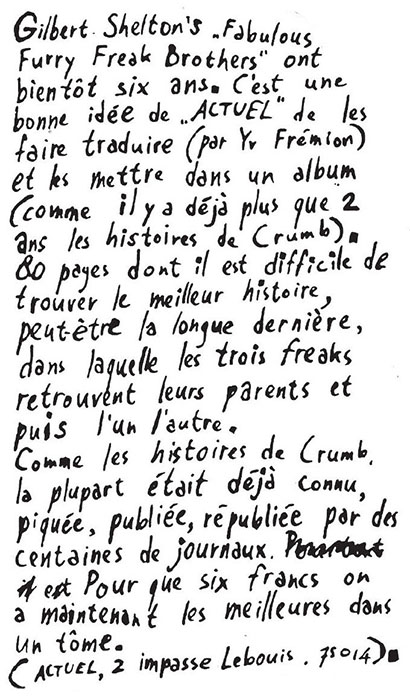 Gilbert Shelton's „Fabulous
Furry Freak Brothers" ont
bientôt six ans. C'est une
bonne idée de „ACTUEL" de les
faire traduire (par Yv Frémion)
et les mettre dans un album
(comme il y a déjà plus que 2
ans les histoires de Crumb).
80 pages dont il est difficile de
trouver le meilleur histoire,
peut-être la longue dernière,
dans laquelle les trois freaks
retrouvent leurs parents et
puis l'un l'autre.
Comme les histoires de Crumb,
la plupart était déjà connu,
piquée, publiée, républiée par des
centaines de journaux.
est Pour que six francs on
a maintenant les meilleures dans
un tôme.
(ACTUEL, 2 impasse Lebouis. 75014).